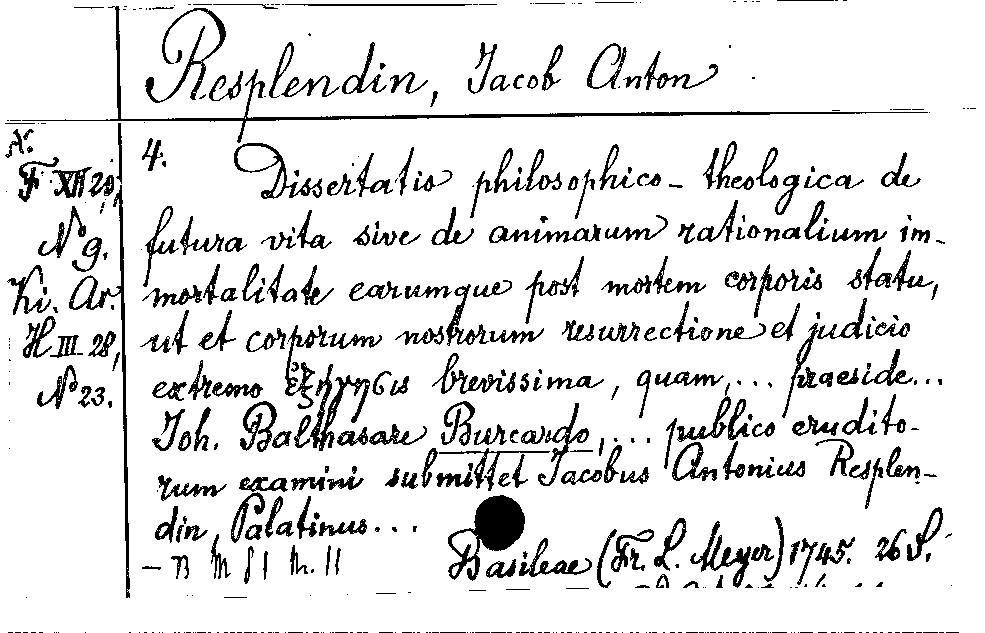 Resplendin, Jacob Anton
F XII 29,
No 9.
Ki. Ar.
H III 28,
No 23.
4.
Dissertatio philosophico-theologica de
futura vita sive de animarum rationalium im-
mortalitate earumque post mortem corporis statu,
ut et corporum nostrorum resurrectione et judicio
extremo ἐξήγησις brevissima, quam,... praeside...
Joh. Balthasare Burcardo,... publico erudito-
rum examini submittet Jacobus Antonius Resplen-
din, Palatinus...
Basileae (Fr. L. Meyer) 1745. 26 S.